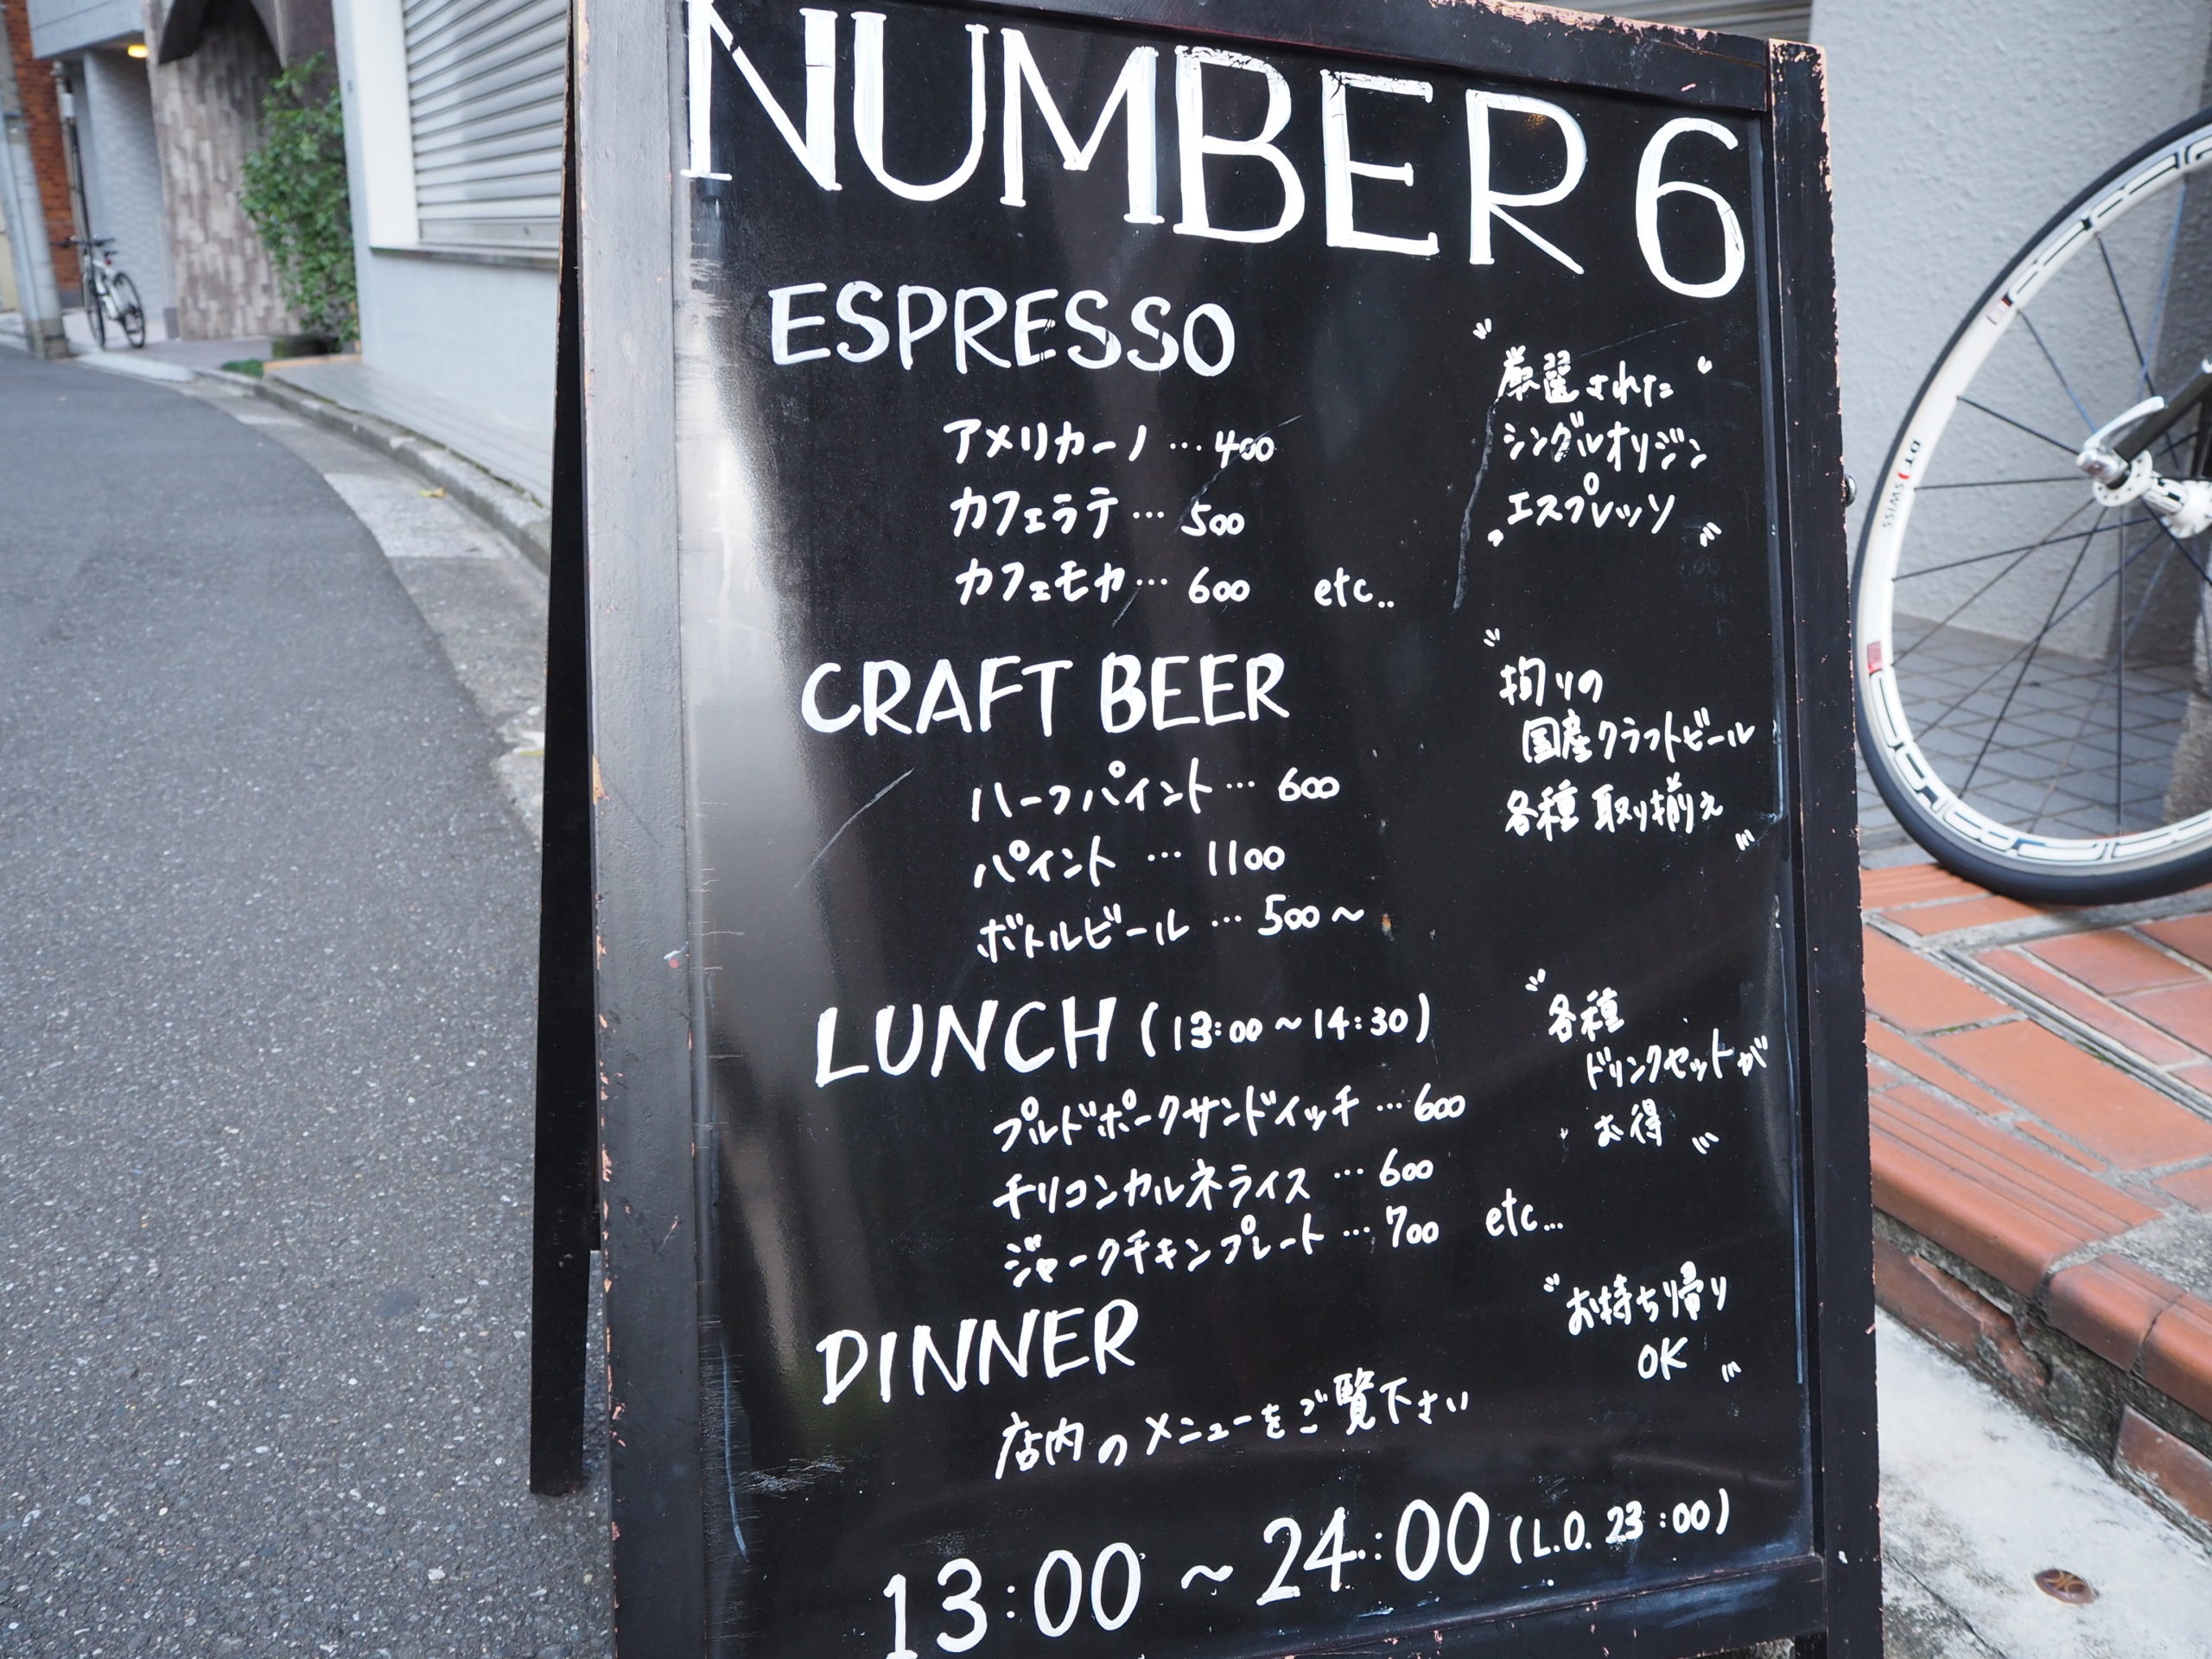 NUMBER 6
ESPRESSO
アメリカーノ … 400
カフェラテ … 500
カフェモカ … 600 etc..
"厳選された
シングルオリジン
エスプレッソ"
CRAFT BEER
ハーフパイント … 600
パイント … 1100
ボトルビール … 500～
"拘りの
国産クラフトビール
各種取り揃え"
LUNCH (13:00～14:30)
プルドポークサンドイッチ … 600
チリコンカルネライス … 600
ジャークチキンプレート … 700 etc...
"各種
ドリンクセットが
お得"
DINNER
店内のメニューをご覧下さい
"お持ち帰り
OK"
13:00～24:00 (L.O. 23:00)
DT SWISS